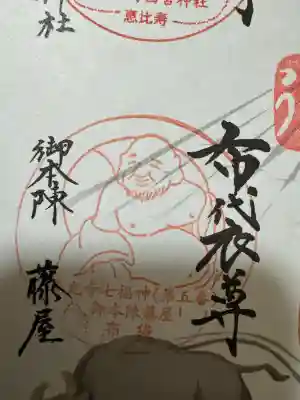 神社
恵比寿
布袋尊
御本陣 藤屋
七福神(第五番
御本陣藤屋
布袋